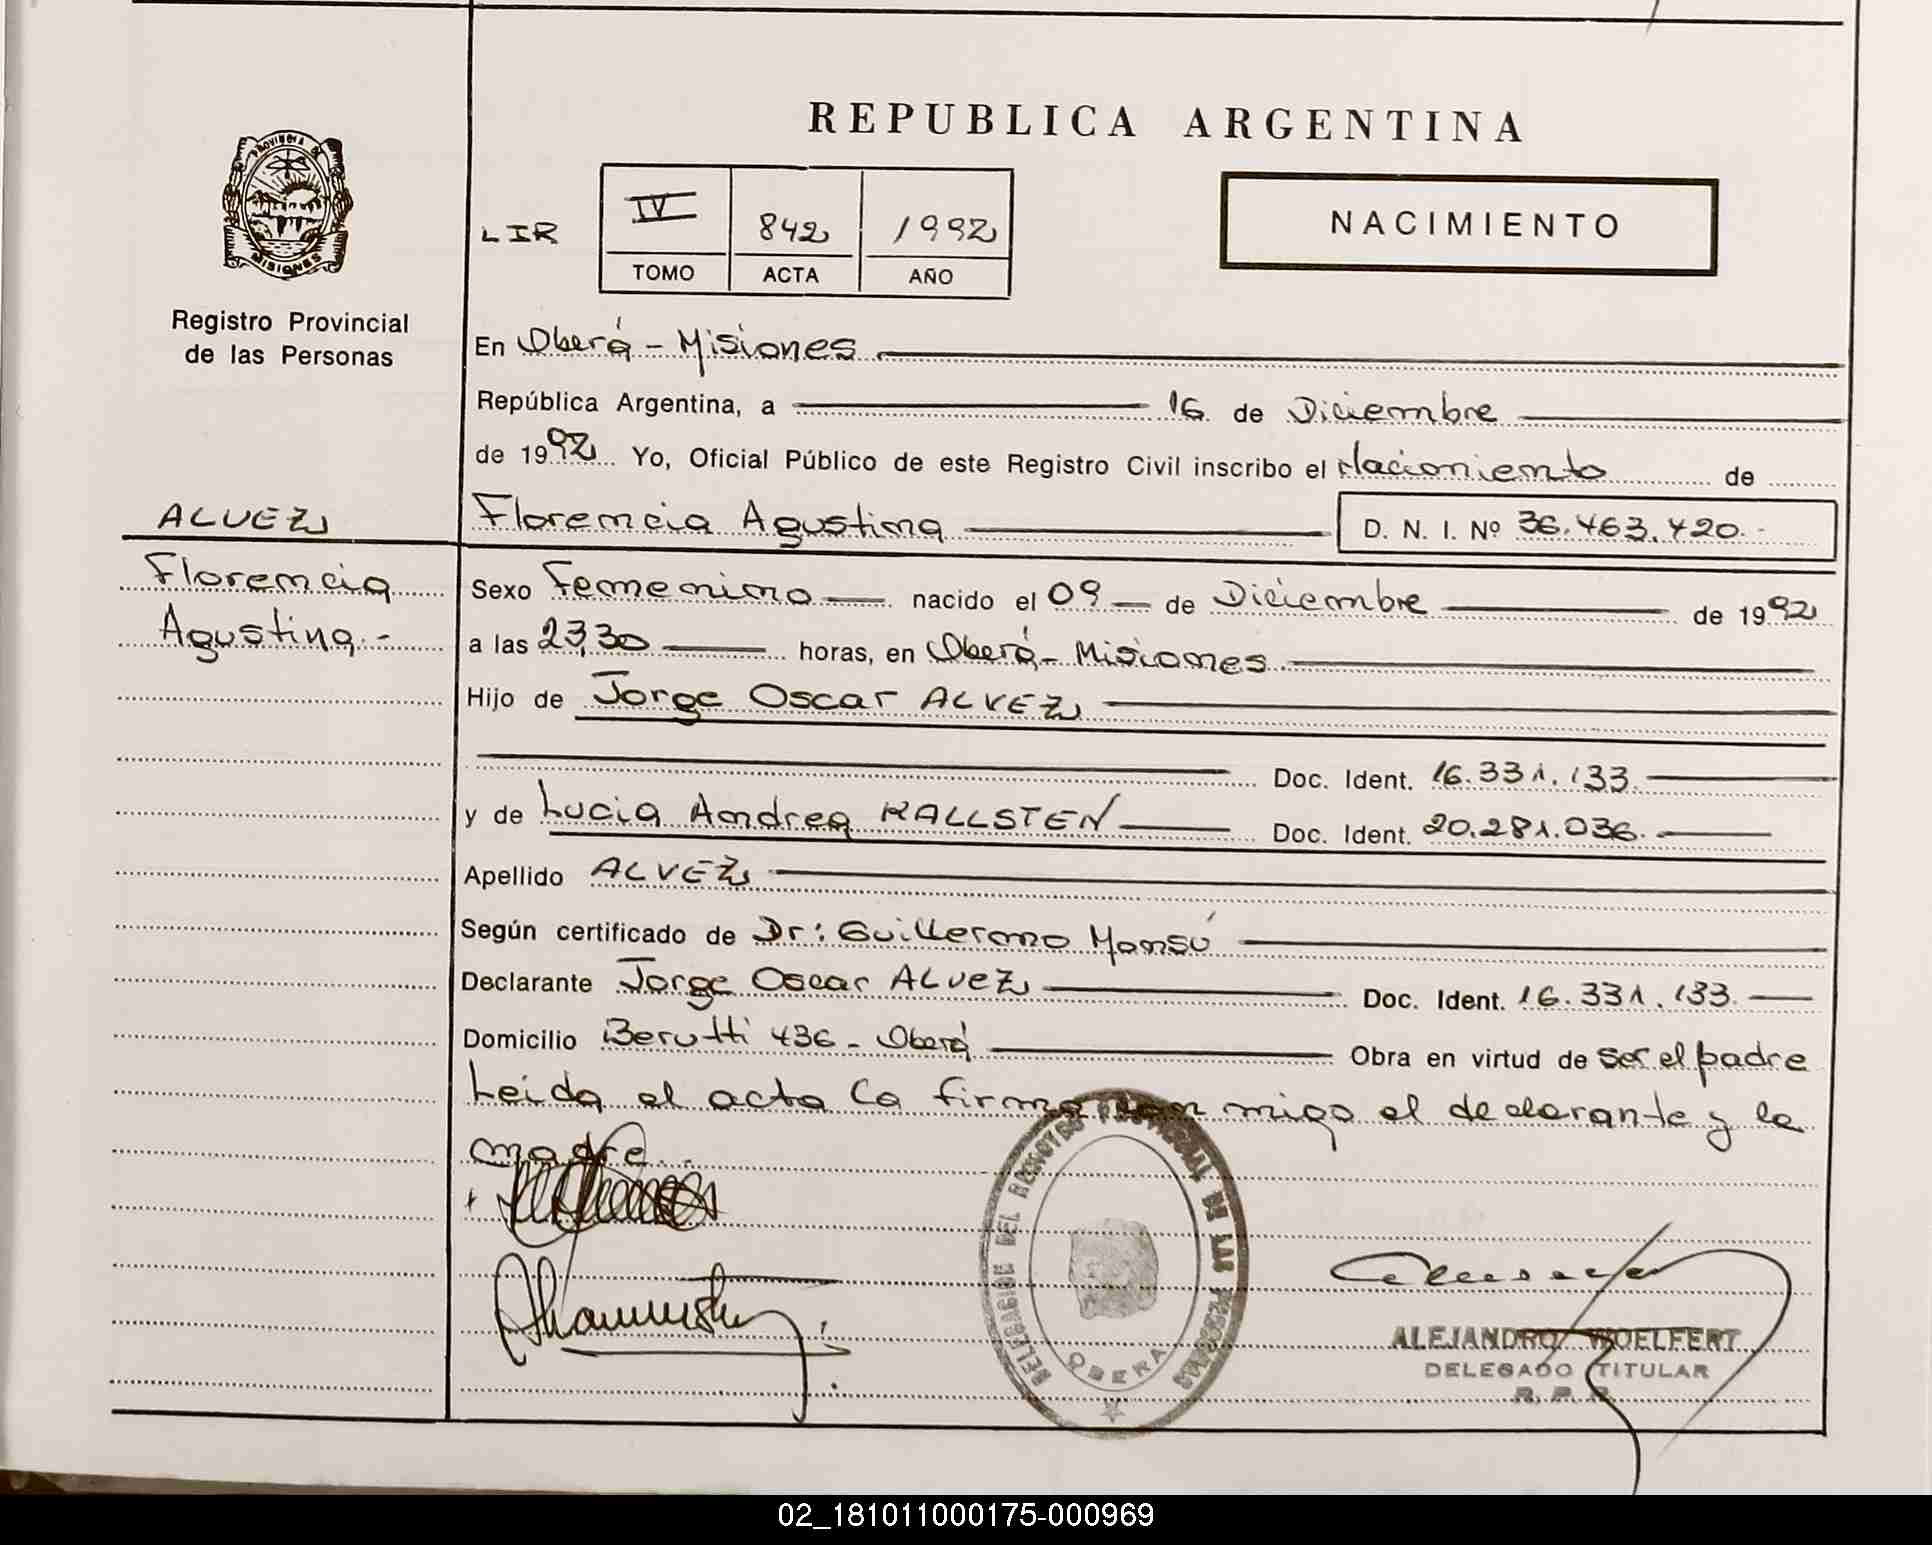 REPUBLICA ARGENTINA
PROVINCIA DE
MISIONES
Registro Provincial
de las Personas
LIR
IV 842 1992
TOMO ACTA AÑO
NACIMIENTO
En Oberá - Misiones
República Argentina, a 16 de Diciembre
de 1992 Yo, Oficial Público de este Registro Civil inscribo el Nacimiento de
ALVEZ
Florencia
Agustina.-
Florencia Agustina D. N. I. Nº 36.463.420.-
Sexo Femenino nacido el 09 de Diciembre de 1992
a las 23,30 horas, en Oberá - Misiones
Hijo de Jorge Oscar ALVEZ
Doc. Ident. 16.331.133.
y de Lucia Andrea KALLSTEN Doc. Ident. 20.281.036.
Apellido ALVEZ
Según certificado de Dr: Guillermo Monsú
Declarante Jorge Oscar ALVEZ Doc. Ident. 16.331.133.
Domicilio Berutti 436 - Oberá Obra en virtud de ser el padre
Leida el acta la firman con migo el declarante y la
madre.
DELEGACION DEL REGISTRO PROVINCIAL DE LAS PERSONAS
OBERA
ALEJANDRO WOELFERT
DELEGADO TITULAR
R. P. P.
02_181011000175-000969